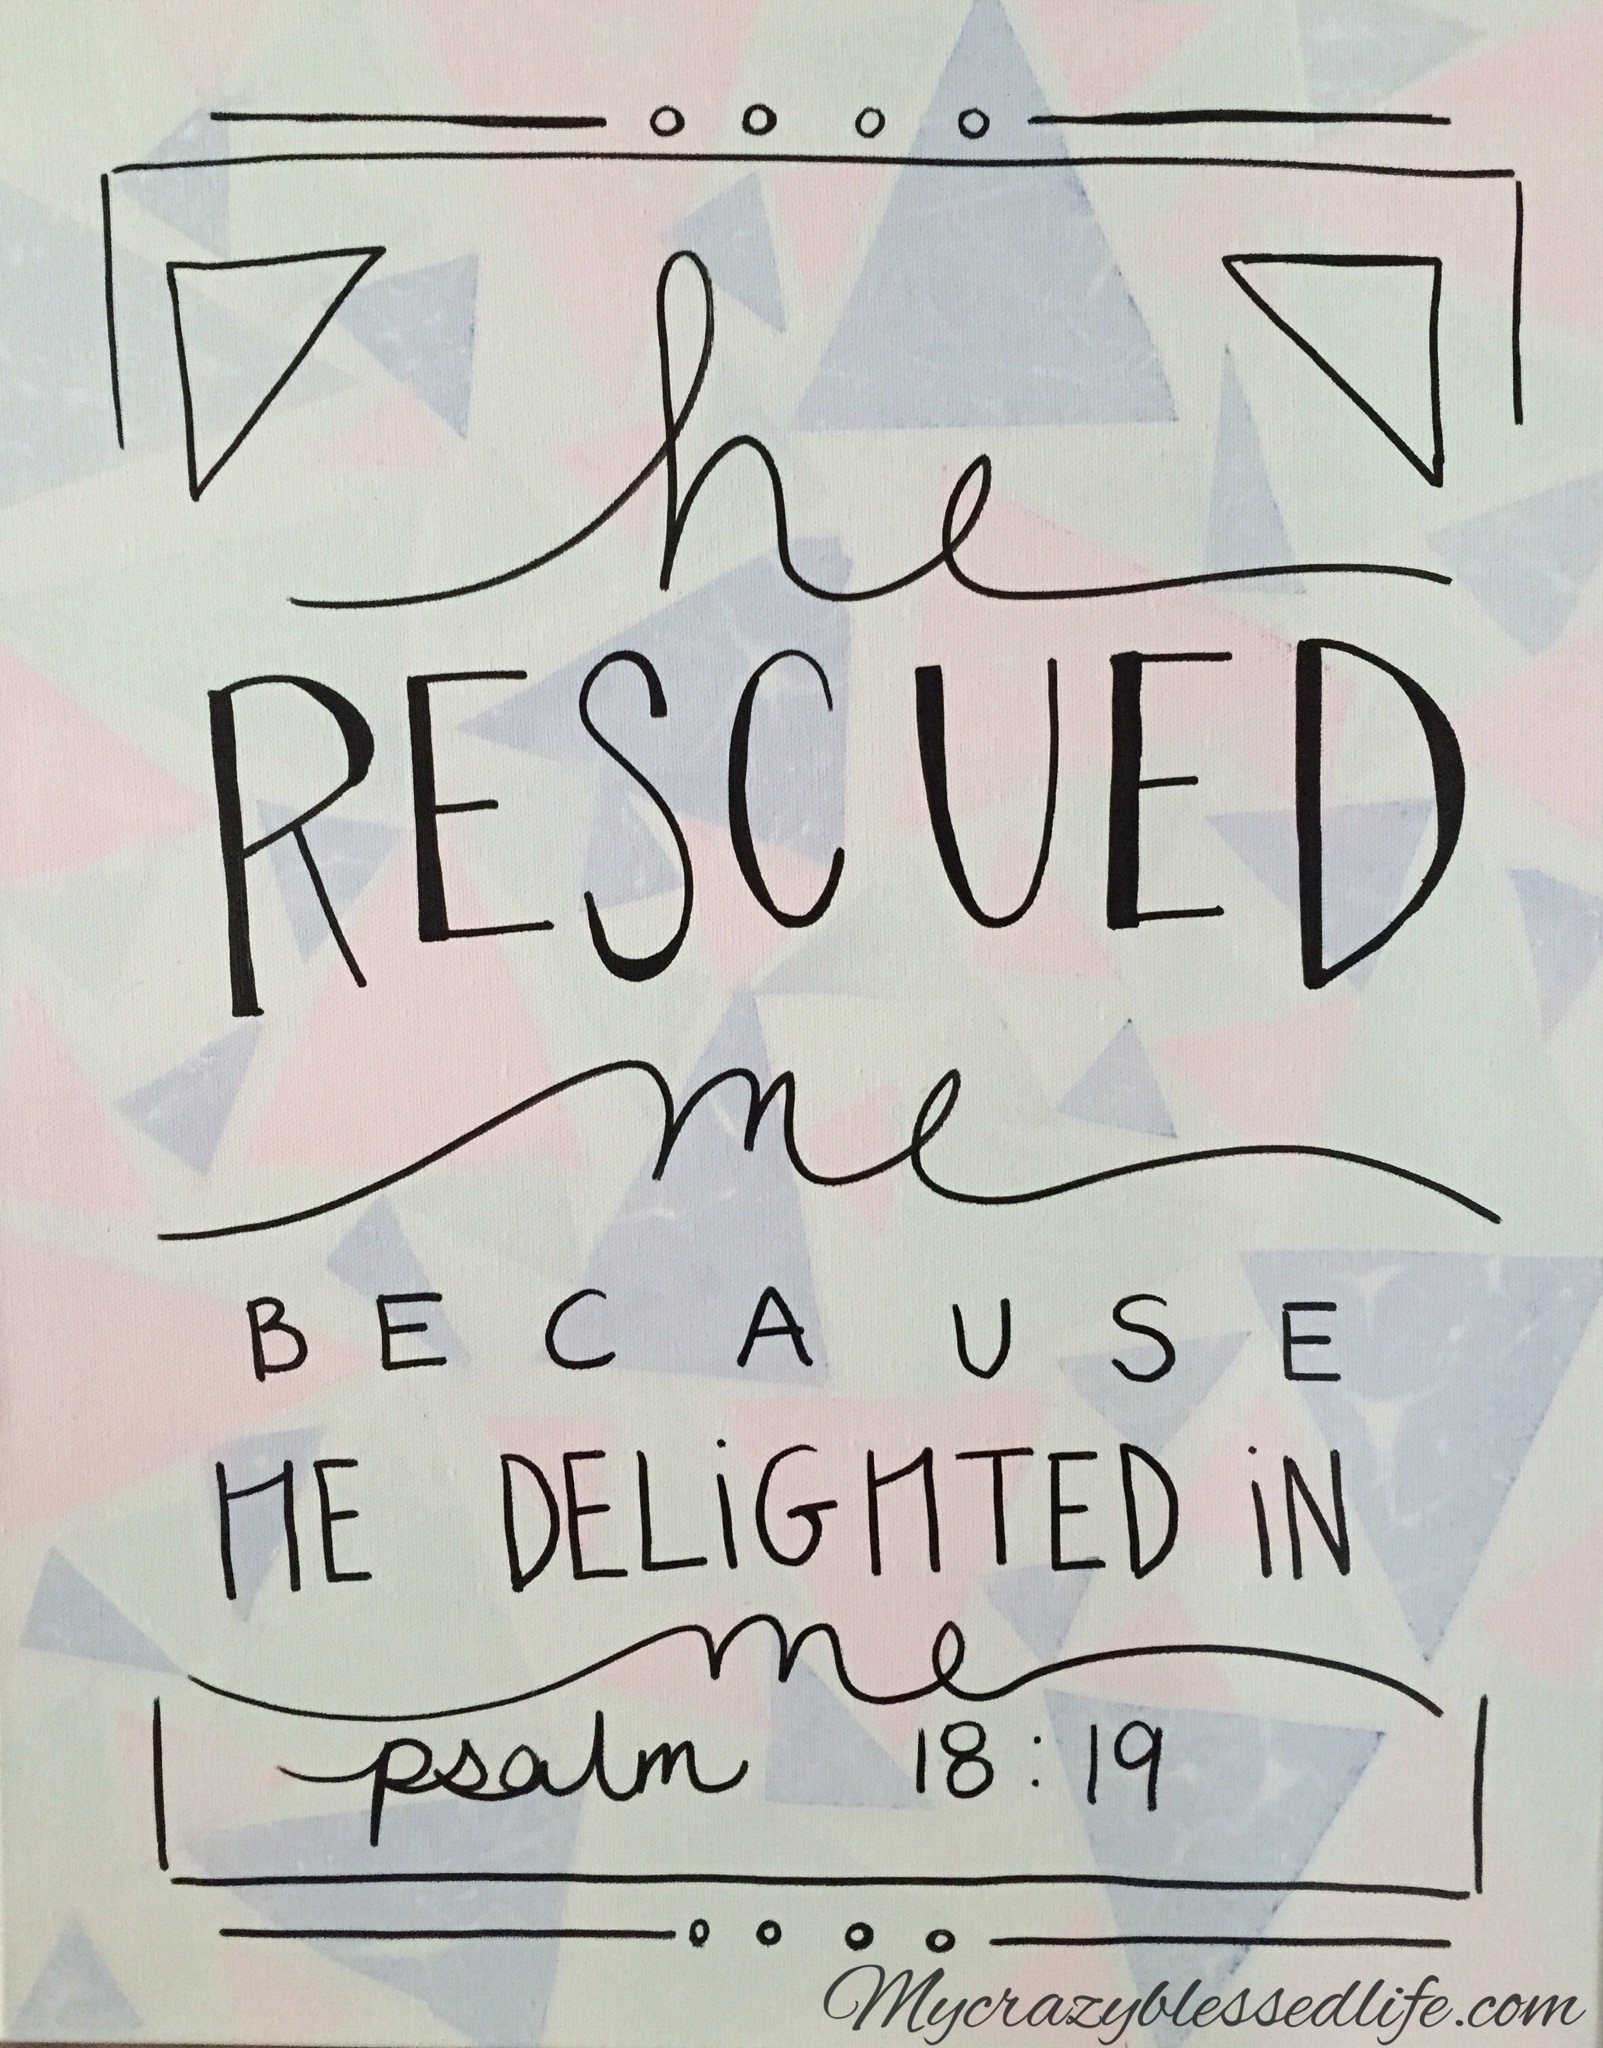 he
RESCUED
me
BECAUSE
HE DELiGHTED iN
me
psalm 18:19
Mycrazyblessedlife.com